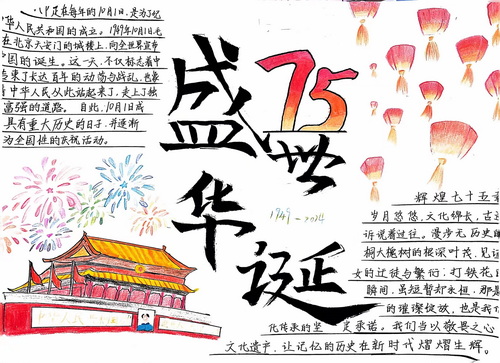 八一是在每年的10月1日，是为了纪
华人民共和国的成立。1949年10月1日毛
在北京天安门的城楼上，向全世界宣布
国的诞生。这一天，不仅标志着中
结束了长达百年的动荡与战乱，也象
中华人民从此站起来了，走上了独
富强的道路。自此，10月1日成
具有重大历史的日子，并逐渐
为全国性的庆祝活动。
盛世华诞
75
1949-2024
辉煌七十五
岁月悠悠，文化绵长，古
诉说着过往。漫步无历史的
桐大槐树的根深叶茂，见证
女的迁徙与繁衍；打铁花
瞬间，虽短暂却永恒，那是
的璀璨绽放，也是我
化传承的坚定承诺。我们当以敬畏之心
文化遗产，让记忆的历史在新时代熠熠生辉。